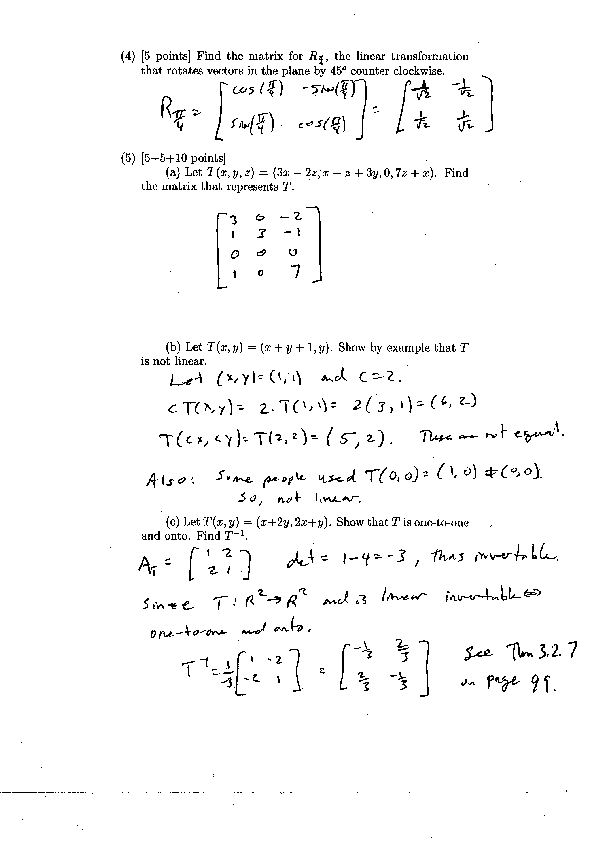 (4) [5 points] Find the matrix for R_{π/4}, the linear transformation
that rotates vectors in the plane by 45° counter clockwise.
R_{π/4} = [cos(π/4) -sin(π/4)] = [1/√2 -1/√2]
[sin(π/4) cos(π/4)] [1/√2 1/√2]
(5) [5+5+10 points]
(a) Let T(x, y, z) = (3x − 2z, x − z + 3y, 0, 7z + x). Find
the matrix that represents T.
3 0 -2
1 3 -1
0 0 0
1 0 7
(b) Let T(x, y) = (x + y + 1, y). Show by example that T
is not linear.
Let (x,y)=(1,1) and c=2.
cT(x,y)= 2·T(1,1)= 2(3,1)=(6,2)
T(cx,cy)=T(2,2)=(5,2). These are not equal.
Also: Some people used T(0,0)=(1,0)≠(0,0).
So, not linear.
(c) Let T(x, y) = (x+2y, 2x+y). Show that T is one-to-one
and onto. Find T⁻¹.
A_T = [1 2] det = 1-4=-3, thus invertable.
[2 1]
Since T: R²→R² and is linear invertable ⇔
one-to-one and onto.
T⁻¹ = 1/-3 [1 -2] = [-1/3 2/3] See Thm 3.2.7
[-2 1] [2/3 -1/3] on page 99.